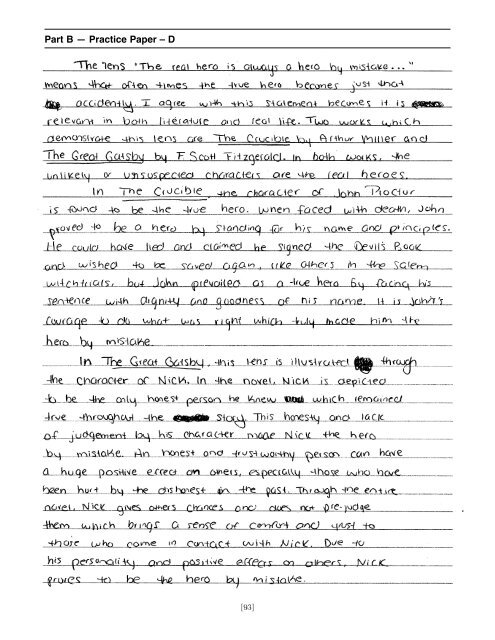 Part B — Practice Paper – D
The lens "The real hero is always a hero by mistake..."
means that often times the true hero becomes just that
accidently. I agree with this statement becomes it is
relevant in both literature and real life. Two works which
demonstrate this lens are The Crucible by Arthur Miller and
The Great Gatsby by F. Scott Fitzgerald. In both works, the
unlikely or unsuspected characters are the real heroes.
In The Crucible, the character of John Proctur
is found to be the true hero. When faced with death, John
proved to be a hero by standing for his name and principles.
He could have lied and claimed he signed the Devil's Book
and wished to be saved again, like others in the Salem
witchtrials, but John prevailed as a true hero by facing his
sentence with dignity and goodness of his name. It is John's
courage to do what was right which truly made him the
hero by mistake.
In The Great Gatsby, this lens is illustrated through
the character of Nick. In the novel, Nick is depicted
to be the only honest person he knew which remained
true throughout the story. This honesty and lack
of judgement by his character made Nick the hero
by mistake. An honest and trustworthy person can have
a huge positive effect on others, especially those who have
been hurt by the dishonest in the past. Through the entire
novel, Nick gives others chances and does not pre-judge
them which brings a sense of comfort and trust to
those who come in contact with Nick. Due to
his personality and positive effects on others, Nick
proves to be the hero by mistake.
[93]